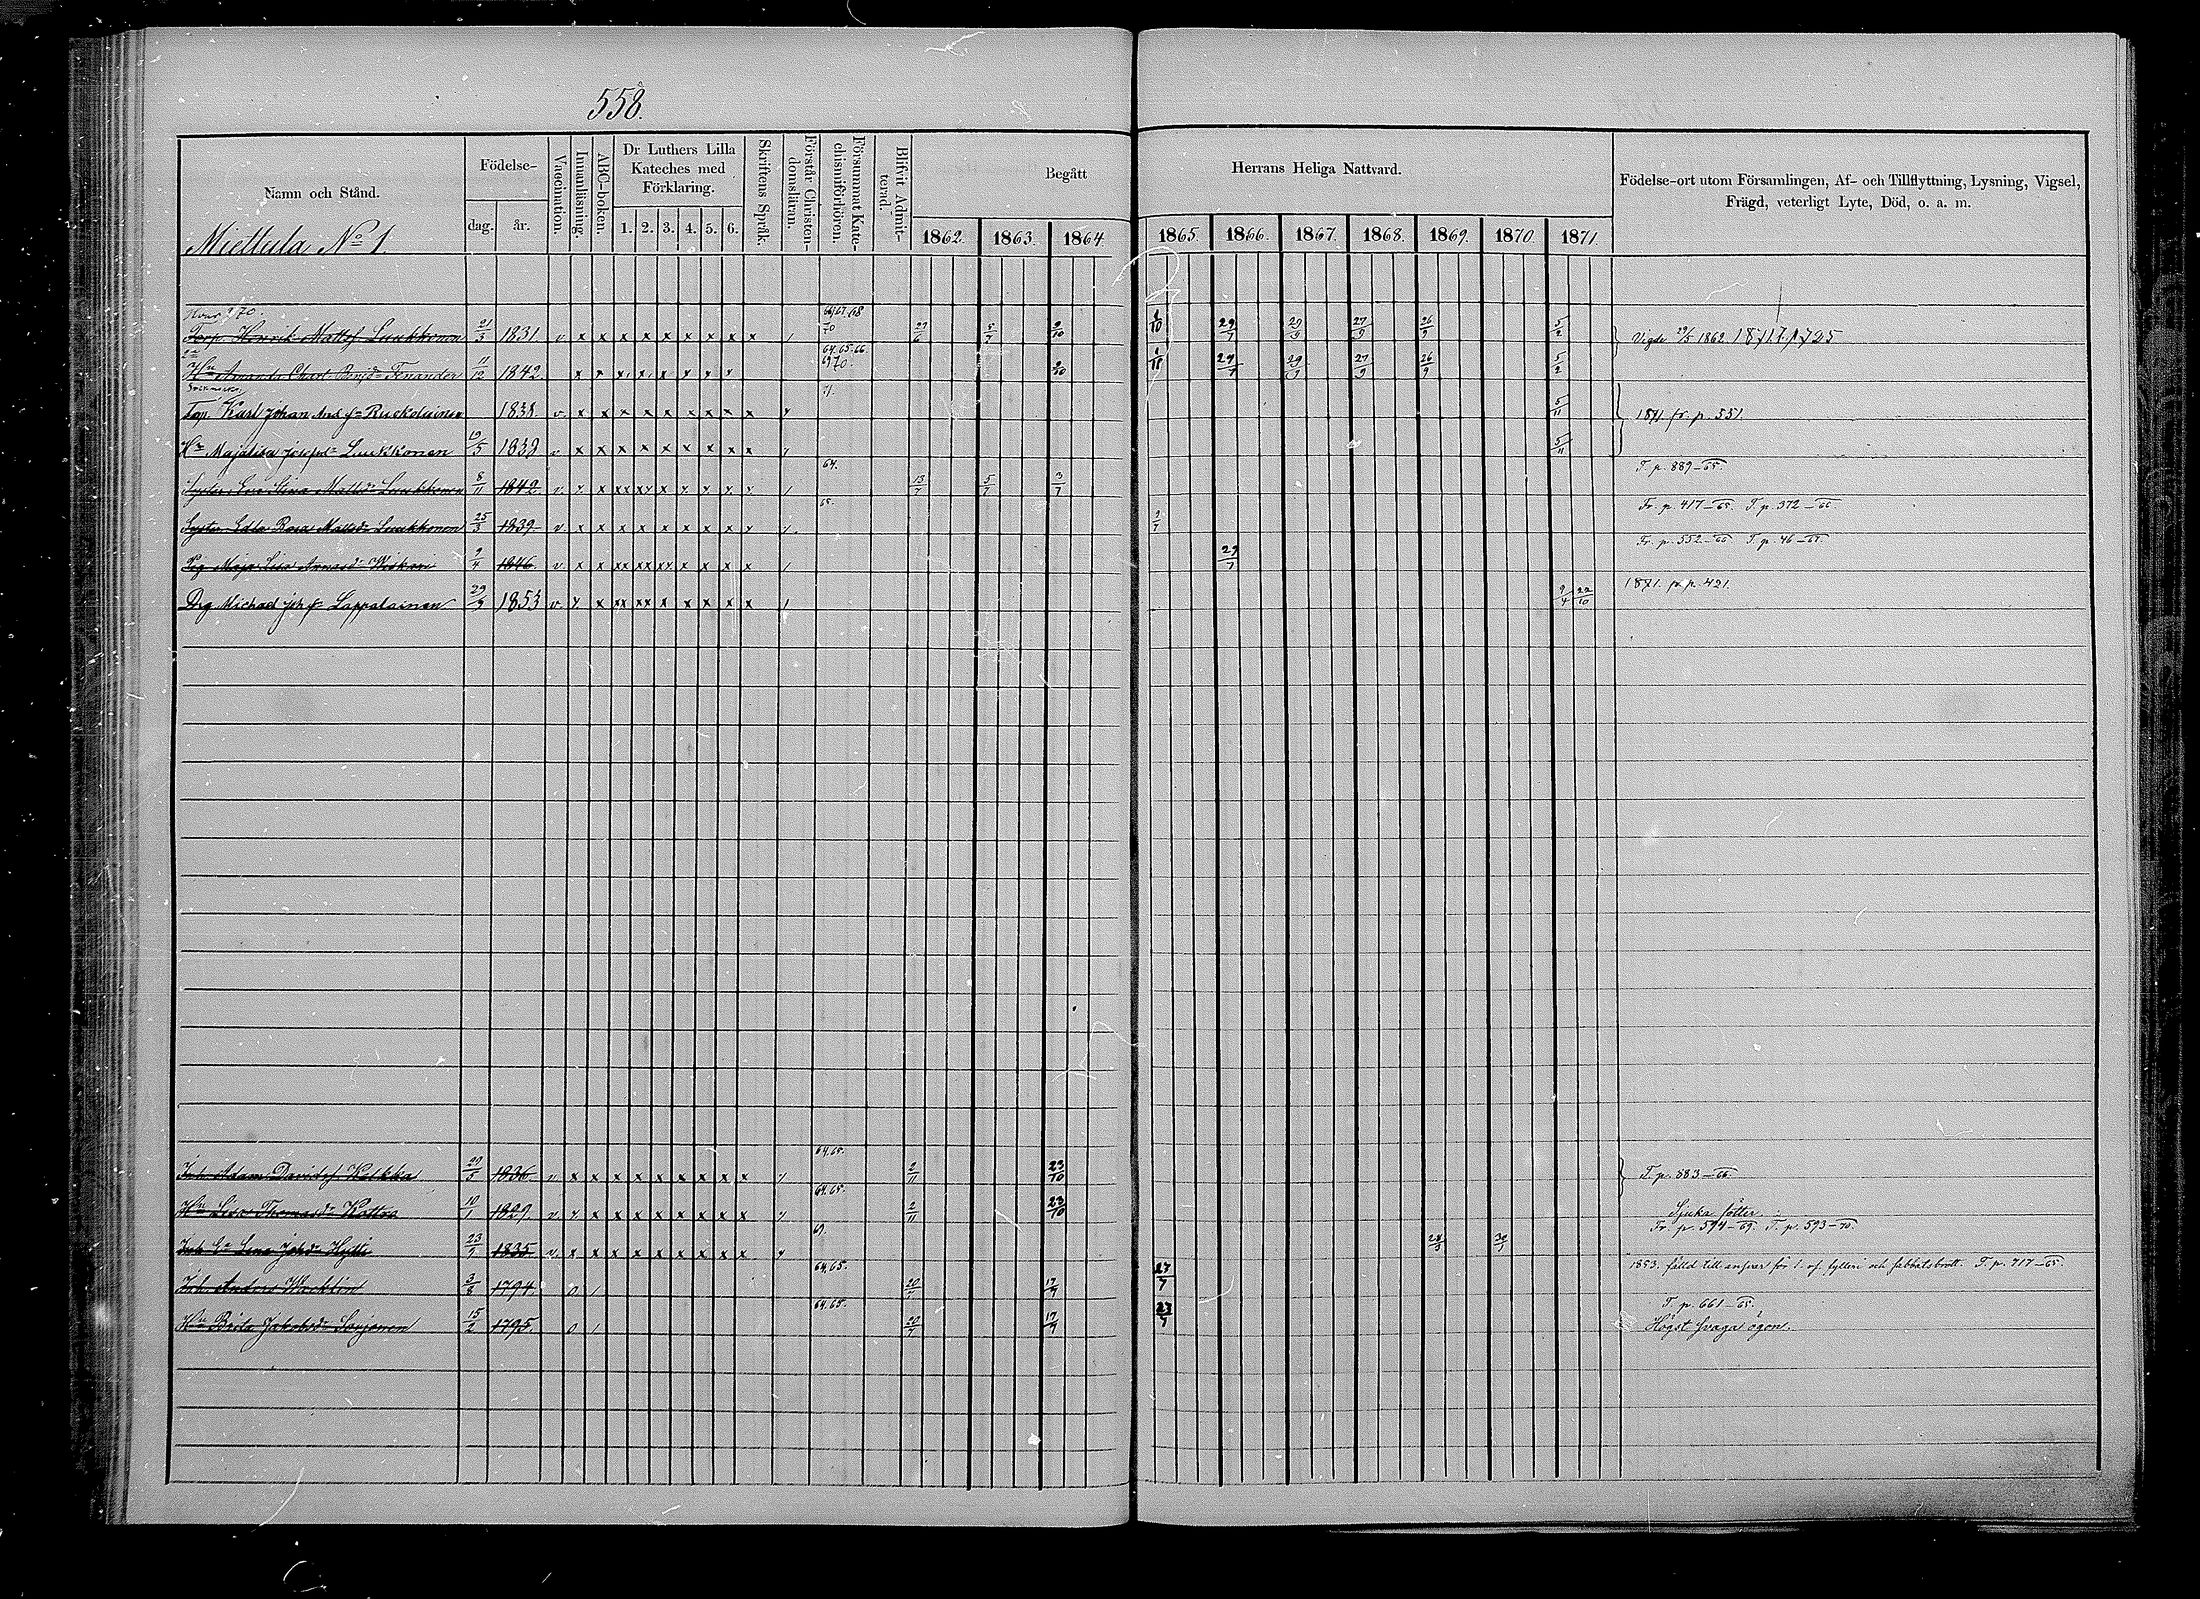 558.
Namn och Stånd.
Födelse-
dag. år.
Vaccination.
Innanläsning.
ABC-boken.
Dr Luthers Lilla Kateches med Förklaring.
1. 2. 3. 4. 5. 6.
Skriftens Språk.
Förstår Christendomsläran.
Försummat Katechismiförhören.
Blifvit Admitterad.
Begått Herrans Heliga Nattvard.
1862. 1863. 1864. 1865. 1866. 1867. 1868. 1869. 1870. 1871.
Födelse-ort utom Församlingen, Af- och Tillflyttning, Lysning, Vigsel,
Frägd, veterligt Lyte, Död, o. a. m.
Miettula No 1.
Torp. Henrik Mattsf. Luukkonen 21/3 1831 v x x x x x x x x x 66/67.68 70 5/7 9/10 1/10 29/7 29/9 27/9 26/9 5/2 Vigde 29/5 1862
64.65.66.
Hu Amanda Charl. Benjd. Fenander 11/12 1842. 69 70. 9/10 29/7 29/9 27/9 26/9 5/2
Karl Johan And. f. Ruokolainen 1838. v x x x x x x x x x 71. 5/11 1871 fr. p. 551.
Hu Majalisa Josefsd. Luukkonen 19/5 1838 v x x x x x x x x x 5/11
64. T. p. 889-65.
Syster Eva Stina Mattsd. Luukkonen 8/11 1842 v. 13/7 5/7 3/7
65. Fr. p. 417-65. T. p. 372-66.
Syster Edla Mattsd. Luukkonen 25/3 1839. v. x x x x x x x x 2/7
Fr. p. 552-66 T. p. 46-67.
Pig. Maja Lisa 9/4 1846. v. x x xx xx xx x x x x 29/7
1871. fr. p. 421.
Drg Michael Joh.f. Lappalainen 29/9 1853 v. x xx xx x x x x x 9/4 22/10
64.65.
Inh. Adam Davidsf. 20/5 1836. v x x x x x x x x x 2/11 23/10 T. p. 883-66.
64.65.
Hu Lisa Thomasd. 10/1 1829. v x x x x x x x x 2/11 23/10 Sjuka fötter.
69. Fr. p. 594-69. T. p. 593-70.
Lena Johd. Hytti 23/2 1835 v. x x x x x x x x x
64.65. 1853. fälld till ansvar för 1. g. fylleri och sabbatsbrott. T. p. 717-65.
Inh. Anders 3/8 1794. 0 17/7 27/7
64.65. T. p. 661-65.
Hu Brita Jakobsd. Sorjonen 15/2 1795. 0 20/7 17/7 Högst svaga ögon.